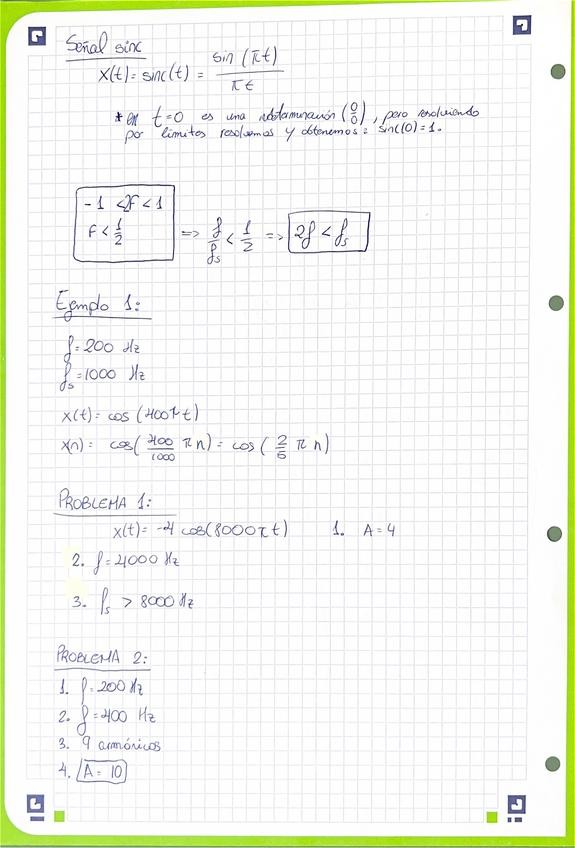 Señal sinc
x(t) = sinc(t) = sin (πt) / πt
* en t=0 es una indeterminación (0/0), pero resolviendo
por límites resolvemos y obtenemos: sinc(0)=1.
-1 < 2F < 1
F < 1/2 => f/fs < 1/2 => 2f < fs
Ejemplo 1:
f = 200 Hz
fs = 1000 Hz
x(t) = cos (400πt)
x(n) = cos( 400/1000 π n) = cos ( 2/5 π n)
PROBLEMA 1:
x(t) = -4 cos(8000πt) 1. A=4
2. f = 4000 Hz
3. fs > 8000 Hz
PROBLEMA 2:
1. f = 200 Hz
2. f = 400 Hz
3. 9 armónicos
4. A = 10